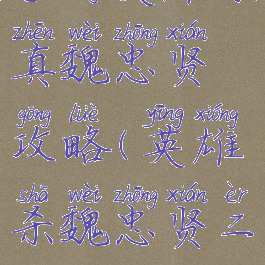 zhēn wèi zhōng xián
真魏忠贤
gōng lüè yīng xióng
攻略(英雄
shā wèi zhōng xián èr
杀魏忠贤二